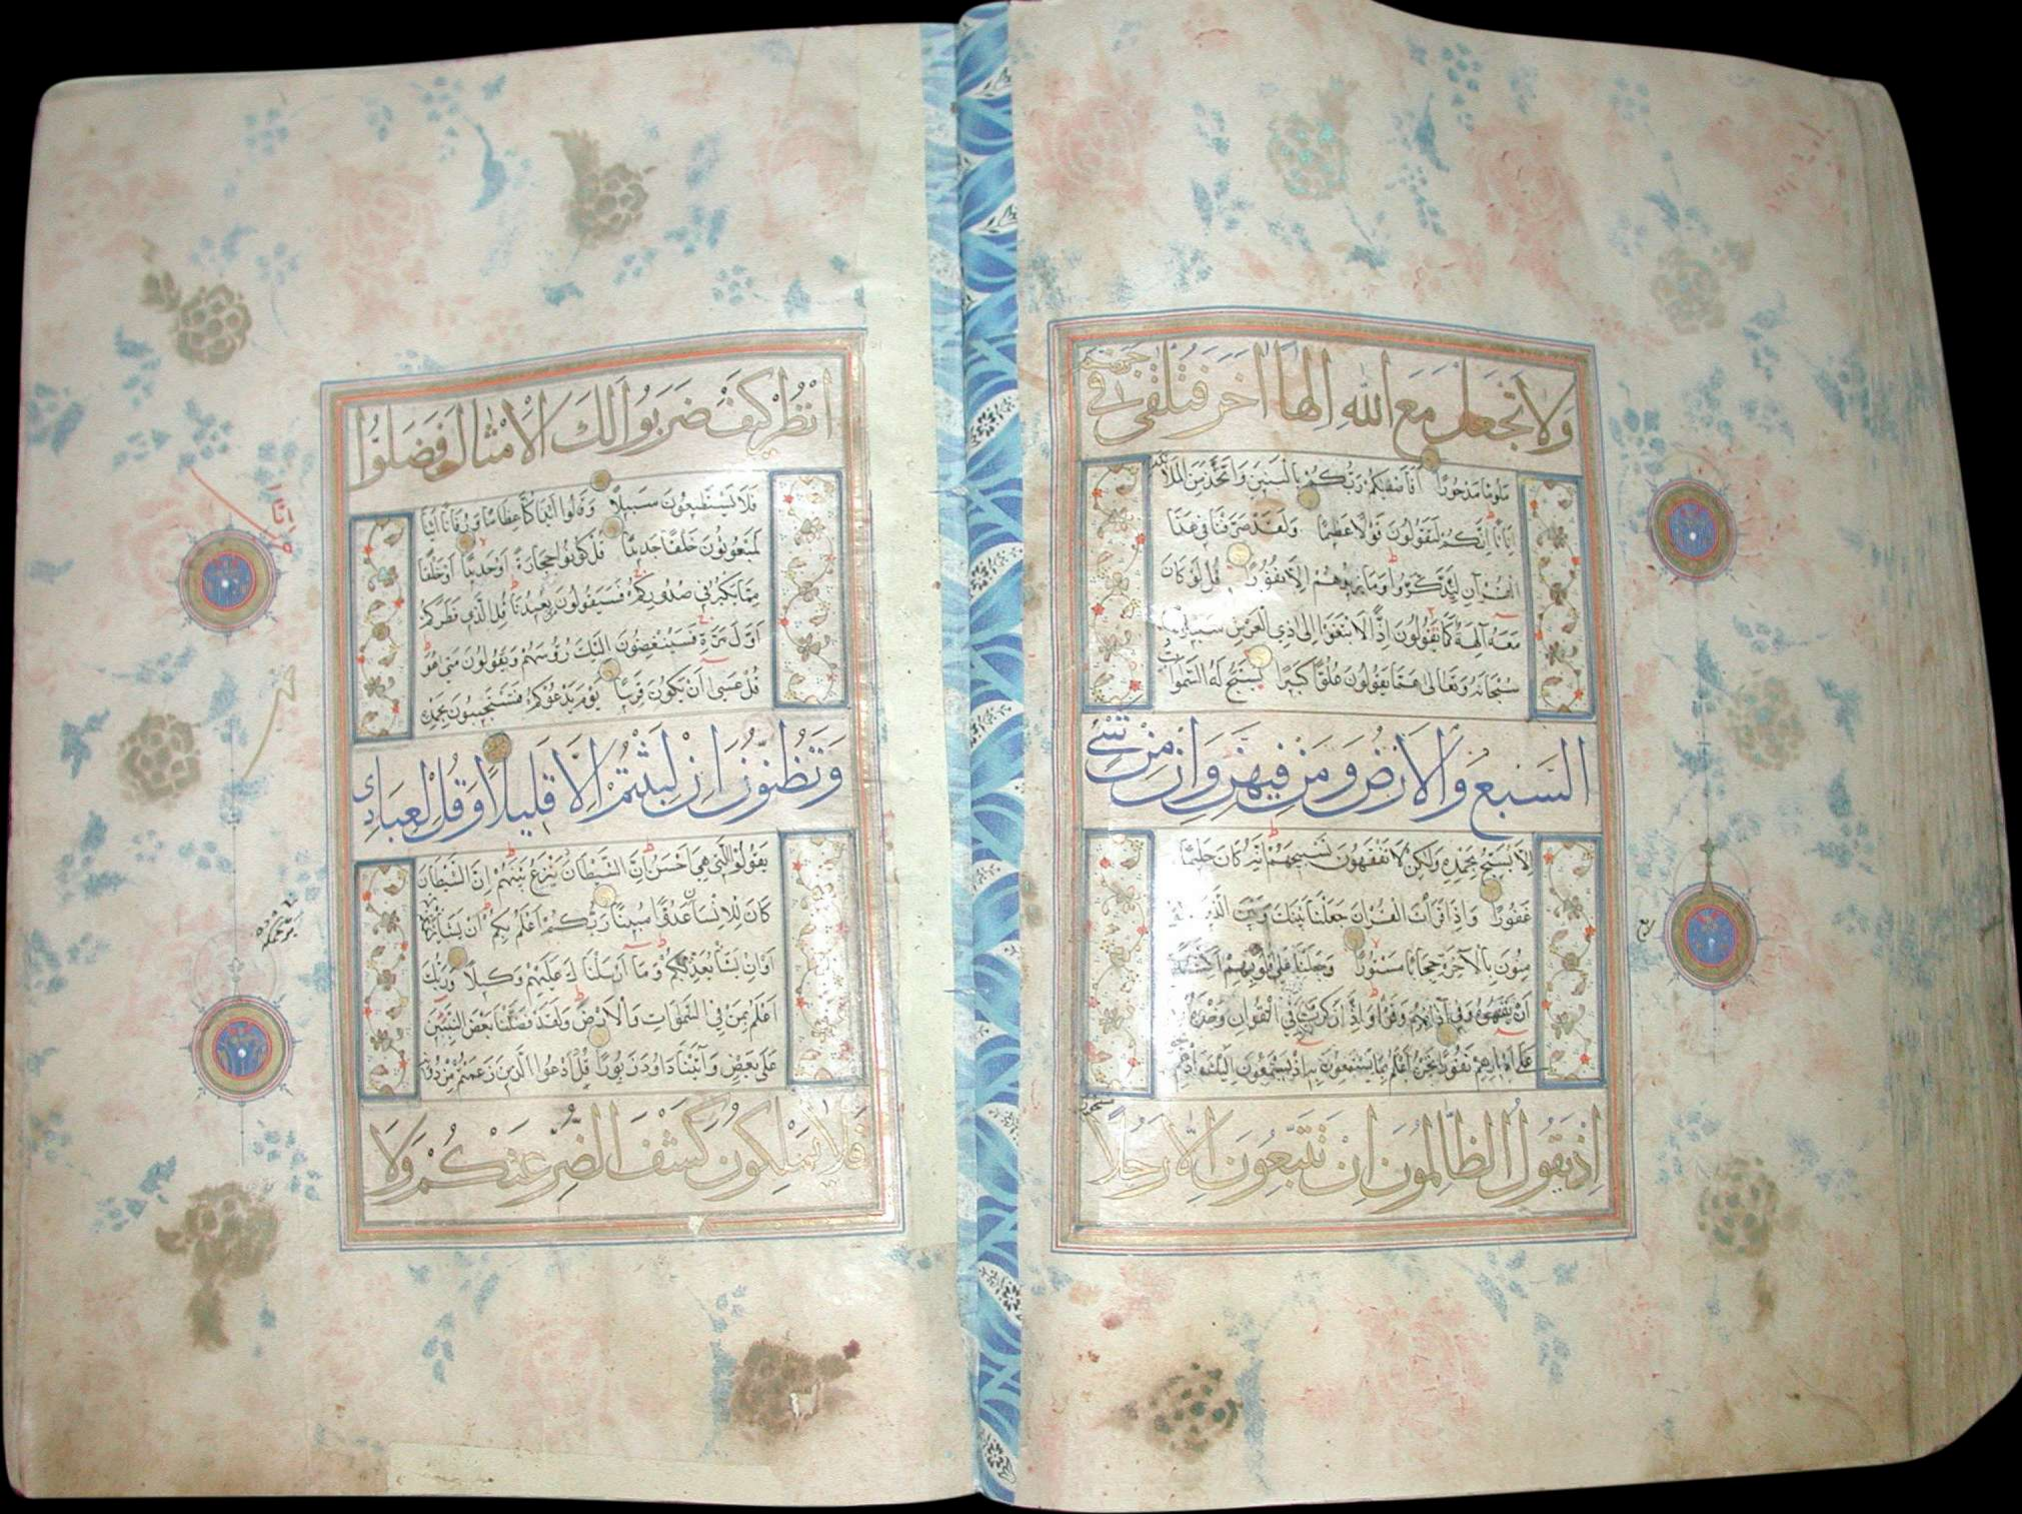 وَلَا تَجْعَلْ مَعَ اللّٰهِ اِلٰهًا اٰخَرَ فَتُلْقٰى فِي جَهَنَّمَ
مَلُومًا مَدْحُورًا اَفَاَصْفٰيكُمْ رَبُّكُمْ بِالْبَنِينَ وَاتَّخَذَ مِنَ الْمَلٰٓئِكَةِ
اِنَاثًا اِنَّكُمْ لَتَقُولُونَ قَوْلًا عَظِيمًا وَلَقَدْ صَرَّفْنَا فِي هٰذَا
الْقُرْآنِ لِيَذَّكَّرُوا وَمَا يَزِيدُهُمْ اِلَّا نُفُورًا قُلْ لَوْ كَانَ
مَعَهُ آلِهَةٌ كَمَا يَقُولُونَ اِذًا لَابْتَغَوْا اِلٰى ذِي الْعَرْشِ سَبِيلًا
سُبْحَانَهُ وَتَعَالٰى عَمَّا يَقُولُونَ عُلُوًّا كَبِيرًا يُسَبِّحُ لَهُ السَّمٰوَاتُ
السَّبْعُ وَالْاَرْضُ وَمَنْ فِيهِنَّ وَاِنْ مِنْ شَيْءٍ
اِلَّا يُسَبِّحُ بِحَمْدِهِ وَلٰكِنْ لَا تَفْقَهُونَ تَسْبِيحَهُمْ اِنَّهُ كَانَ حَلِيمًا
غَفُورًا وَاِذَا قَرَأْتَ الْقُرْآنَ جَعَلْنَا بَيْنَكَ وَبَيْنَ الَّذِينَ
مِنُونَ بِالْآخِرَةِ حِجَابًا مَسْتُورًا وَجَعَلْنَا عَلٰى قُلُوبِهِمْ اَكِنَّةً
اَنْ يَفْقَهُوهُ وَفِي آذَانِهِمْ وَقْرًا وَاِذَا ذَكَرْتَ رَبَّكَ فِي الْقُرْآنِ وَحْدَهُ وَلَّوْا
عَلٰى اَدْبَارِهِمْ نُفُورًا نَحْنُ اَعْلَمُ بِمَا يَسْتَمِعُونَ بِهِ اِذْ يَسْتَمِعُونَ اِلَيْكَ وَاِذْ هُمْ نَجْوٰى
اِذْ يَقُولُ الظَّالِمُونَ اِنْ تَتَّبِعُونَ اِلَّا رَجُلًا مَسْحُورًا
ربع
اُنْظُرْ كَيْفَ ضَرَبُوا لَكَ الْاَمْثَالَ فَضَلُّوا
فَلَا يَسْتَطِيعُونَ سَبِيلًا وَقَالُوا اَئِذَا كُنَّا عِظَامًا وَرُفَاتًا اَئِنَّا
لَمَبْعُوثُونَ خَلْقًا جَدِيدًا قُلْ كُونُوا حِجَارَةً اَوْ حَدِيدًا اَوْ خَلْقًا
مِمَّا يَكْبُرُ فِي صُدُورِكُمْ فَسَيَقُولُونَ مَنْ يُعِيدُنَا قُلِ الَّذِي فَطَرَكُمْ
اَوَّلَ مَرَّةٍ فَسَيُنْغِضُونَ اِلَيْكَ رُؤُسَهُمْ وَيَقُولُونَ مَتٰى هُوَ
قُلْ عَسٰى اَنْ يَكُونَ قَرِيبًا يَوْمَ يَدْعُوكُمْ فَتَسْتَجِيبُونَ بِحَمْدِهِ
وَتَظُنُّونَ اِنْ لَبِثْتُمْ اِلَّا قَلِيلًا وَقُلْ لِعِبَادِي
يَقُولُوا الَّتِي هِيَ اَحْسَنُ اِنَّ الشَّيْطَانَ يَنْزَغُ بَيْنَهُمْ اِنَّ الشَّيْطَانَ
كَانَ لِلْاِنْسَانِ عَدُوًّا مُبِينًا رَبُّكُمْ اَعْلَمُ بِكُمْ اِنْ يَشَأْ يَرْحَمْكُمْ
اَوْ اِنْ يَشَأْ يُعَذِّبْكُمْ وَمَا اَرْسَلْنَاكَ عَلَيْهِمْ وَكِيلًا وَرَبُّكَ
اَعْلَمُ بِمَنْ فِي السَّمٰوَاتِ وَالْاَرْضِ وَلَقَدْ فَضَّلْنَا بَعْضَ النَّبِيِّينَ
عَلٰى بَعْضٍ وَآتَيْنَا دَاوُدَ زَبُورًا قُلِ ادْعُوا الَّذِينَ زَعَمْتُمْ مِنْ دُونِهِ
فَلَا يَمْلِكُونَ كَشْفَ الضُّرِّ عَنْكُمْ وَلَا
يَرْحَمْكُمْ